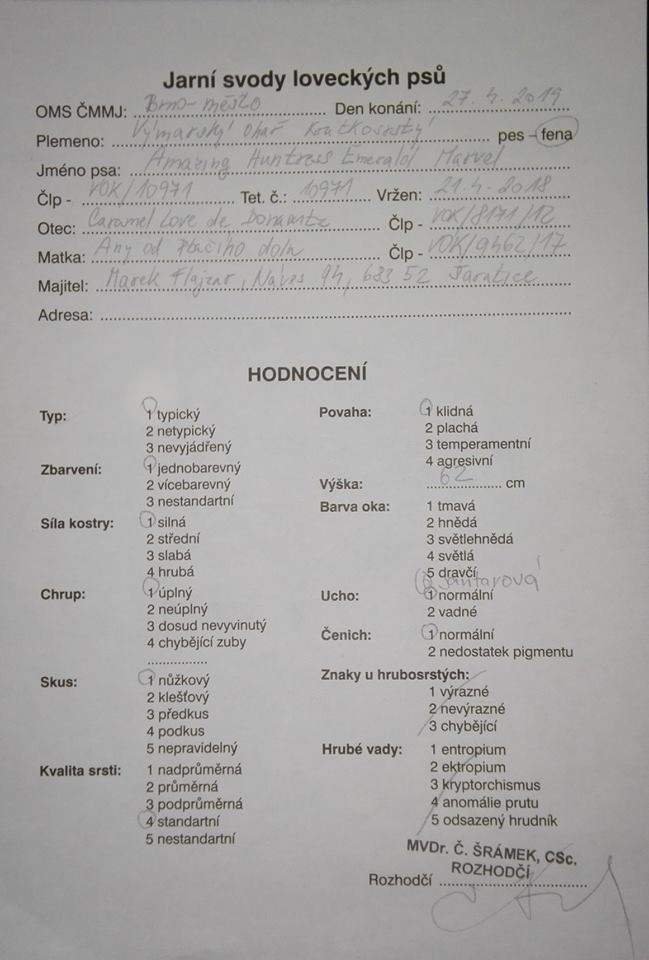 Jarní svody loveckých psů
OMS ČMMJ: Brno-město Den konání: 27.4.2019
Plemeno: Výmarský ohař krátkosrstý pes - fena
Jméno psa: Amazing Huntress Emerald Marvel
Člp - VOK/10971 Tet. č.: 10971 Vržen: 21.4.2018
Otec: Caramel Love de Člp - VOK/8171/12
Matka: Any od Ptačího dolu Člp - VOK/9462/17
Majitel: Marek Flajzar, Náves 94, 683 52
Adresa:
HODNOCENÍ
Typ: 1 typický
2 netypický
3 nevyjádřený
Zbarvení: 1 jednobarevný
2 vícebarevný
3 nestandartní
Síla kostry: 1 silná
2 střední
3 slabá
4 hrubá
Chrup: 1 úplný
2 neúplný
3 dosud nevyvinutý
4 chybějící zuby
Skus: 1 nůžkový
2 klešťový
3 předkus
4 podkus
5 nepravidelný
Kvalita srsti: 1 nadprůměrná
2 průměrná
3 podprůměrná
4 standartní
5 nestandartní
Povaha: 1 klidná
2 plachá
3 temperamentní
4 agresivní
Výška: 62 cm
Barva oka: 1 tmavá
2 hnědá
3 světlehnědá
4 světlá
5 dravčí
6 jantarová
Ucho: 1 normální
2 vadné
Čenich: 1 normální
2 nedostatek pigmentu
Znaky u hrubosrstých:
1 výrazné
2 nevýrazné
3 chybějící
Hrubé vady: 1 entropium
2 ektropium
3 kryptorchismus
4 anomálie prutu
5 odsazený hrudník
MVDr. Č. ŠRÁMEK, CSc.
ROZHODČÍ
Rozhodčí